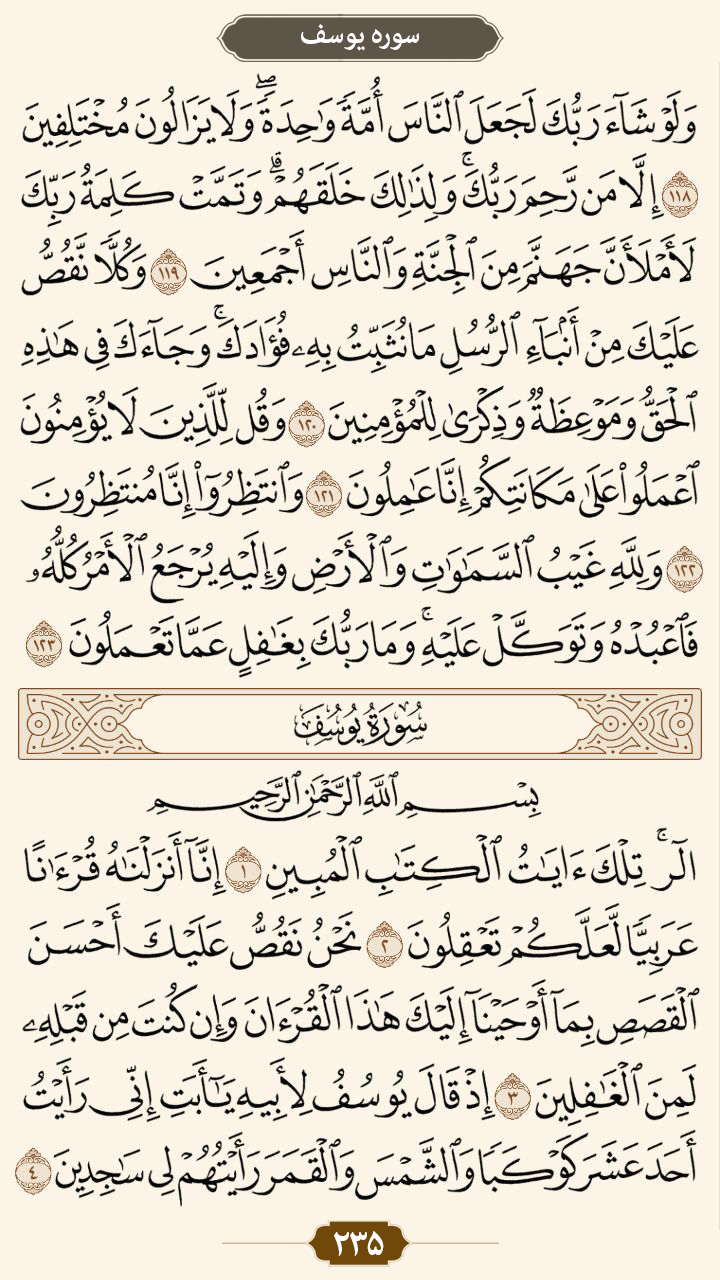 سوره یوسف
وَلَوْ شَآءَ رَبُّكَ لَجَعَلَ ٱلنَّاسَ أُمَّةً وَٰحِدَةًۖ وَلَا يَزَالُونَ مُخْتَلِفِينَ
١١٨ إِلَّا مَن رَّحِمَ رَبُّكَۚ وَلِذَٰلِكَ خَلَقَهُمْۗ وَتَمَّتْ كَلِمَةُ رَبِّكَ
لَأَمْلَأَنَّ جَهَنَّمَ مِنَ ٱلْجِنَّةِ وَٱلنَّاسِ أَجْمَعِينَ ١١٩ وَكُلًّا نَّقُصُّ
عَلَيْكَ مِنْ أَنۢبَآءِ ٱلرُّسُلِ مَا نُثَبِّتُ بِهِۦ فُؤَادَكَۚ وَجَآءَكَ فِى هَٰذِهِ
ٱلْحَقُّ وَمَوْعِظَةٌ وَذِكْرَىٰ لِلْمُؤْمِنِينَ ١٢٠ وَقُل لِّلَّذِينَ لَا يُؤْمِنُونَ
ٱعْمَلُوا۟ عَلَىٰ مَكَانَتِكُمْ إِنَّا عَٰمِلُونَ ١٢١ وَٱنتَظِرُوٓا۟ إِنَّا مُنتَظِرُونَ
١٢٢ وَلِلَّهِ غَيْبُ ٱلسَّمَٰوَٰتِ وَٱلْأَرْضِ وَإِلَيْهِ يُرْجَعُ ٱلْأَمْرُ كُلُّهُۥ
فَٱعْبُدْهُ وَتَوَكَّلْ عَلَيْهِۚ وَمَا رَبُّكَ بِغَٰفِلٍ عَمَّا تَعْمَلُونَ ١٢٣
سُورَةُ يُوسُفَ
بِسْمِ ٱللَّهِ ٱلرَّحْمَٰنِ ٱلرَّحِيمِ
الٓرۚ تِلْكَ ءَايَٰتُ ٱلْكِتَٰبِ ٱلْمُبِينِ ١ إِنَّآ أَنزَلْنَٰهُ قُرْءَٰنًا
عَرَبِيًّا لَّعَلَّكُمْ تَعْقِلُونَ ٢ نَحْنُ نَقُصُّ عَلَيْكَ أَحْسَنَ
ٱلْقَصَصِ بِمَآ أَوْحَيْنَآ إِلَيْكَ هَٰذَا ٱلْقُرْءَانَ وَإِن كُنتَ مِن قَبْلِهِۦ
لَمِنَ ٱلْغَٰفِلِينَ ٣ إِذْ قَالَ يُوسُفُ لِأَبِيهِ يَٰٓأَبَتِ إِنِّى رَأَيْتُ
أَحَدَ عَشَرَ كَوْكَبًا وَٱلشَّمْسَ وَٱلْقَمَرَ رَأَيْتُهُمْ لِى سَٰجِدِينَ ٤
۲۳۵